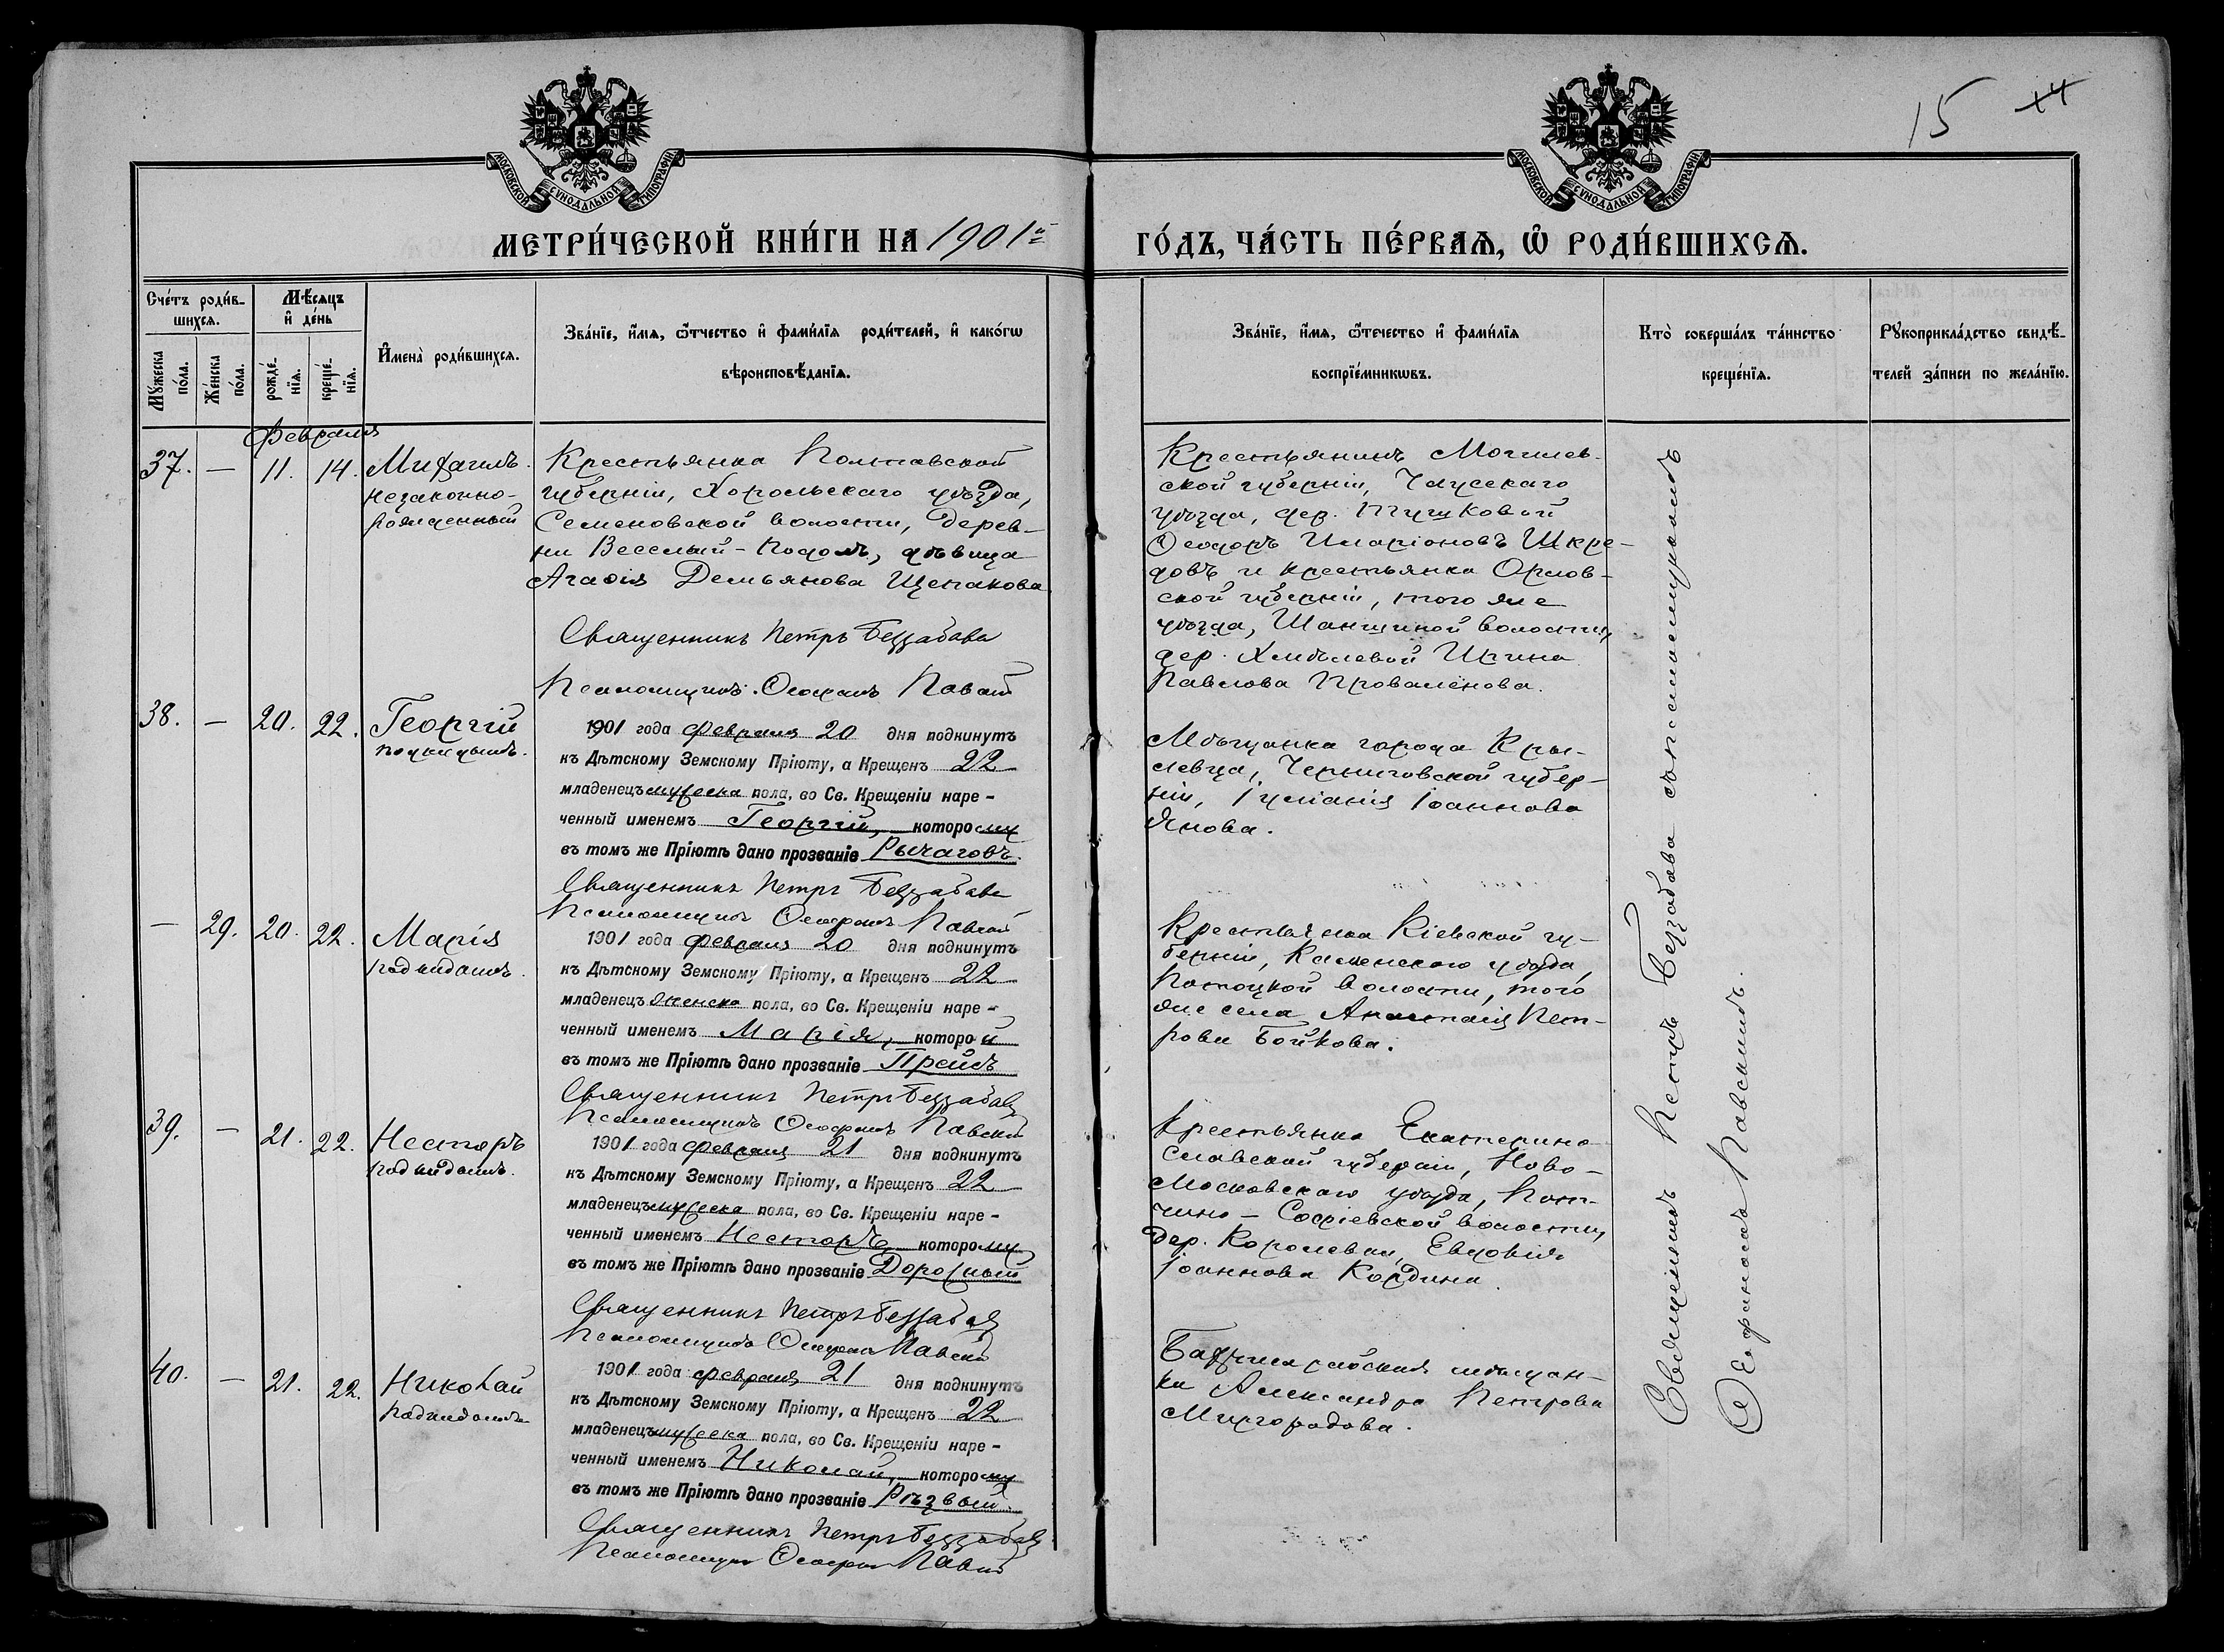 15 14
МОСКОВСКОЙ СѴНОДАЛЬНОЙ ТИПОГРАФІИ.
МОСКОВСКОЙ СѴНОДАЛЬНОЙ ТИПОГРАФІИ.
МЕТРИ́ЧЕСКОЙ КНИ́ГИ НА 1901й
ГО́ДЪ, ЧА́СТЬ ПЕ́РВАѦ, Ѡ҆ РОДИ́ВШИХСѦ.
Сче́тъ роди́в-
шихсѧ.
Мꙋ́жеска по́ла.
Же́нска по́ла.
Мѣ́сѧцъ
и҆ де́нь
рожде́-
нїѧ.
креще́-
нїѧ.
И҆мена̀ роди́вшихсѧ.
Зва́нїе, и҆́мѧ, ѻ҆́тчество и҆ фами́лїѧ роди́телей, и҆ како́гѡ
вѣроисповѣ́данїѧ.
Зва́нїе, и҆́мѧ, ѻ҆́течество и҆ фами́лїѧ
воспрїе́мникѡвъ.
Кто̀ соверша́лъ та́инство
креще́нїѧ.
Рꙋкоприкла́дство свидѣ́-
телей за́писи по жела́нїю.
Февраля
37. — 11. 14. Михаилъ
незаконно-
рожденный
Крестьянка Полтавской
губерніи, Хорольскаго уѣзда,
Семеновской волости, дерев-
ни Веселый-Подолъ, дѣвица
Агаѳія Демьянова Щепакова
Священникъ Петръ Беззабава
Псаломщикъ Ѳеофанъ Павскій
Крестьянинъ Могилев-
ской губерніи, Чаусскаго
уѣзда, дер.
Ѳеодоръ Иларіоновъ Шкре-
довъ и крестьянка Орлов-
ской губерніи, того же
уѣзда, волости,
дер. Хмѣлевой
Павлова Проваленова.
38. — 20. 22. Георгій
подкидышъ.
1901 года Февраля 20 дня подкинутъ
къ Дѣтскому Земскому Пріюту, а Крещенъ 22
младенецъ мужеска пола, во Св. Крещеніи наре-
ченный именемъ Георгій, которому
въ томъ же Пріютѣ дано прозваніе Рычаговъ.
Священникъ Петръ Беззабава
Псаломщикъ Ѳеофанъ Павскій
Мѣщанка города Кро-
левца, Черниговской губер-
ніи, Іуліанія Іоаннова
Янова.
— 29. 20. 22. Марія
подкидышъ.
1901 года Февраля 20 дня подкинутъ
къ Дѣтскому Земскому Пріюту, а Крещенъ 22
младенецъ женска пола, во Св. Крещеніи наре-
ченный именемъ Марія, которой
въ томъ же Пріютѣ дано прозваніе Прейсъ
Священникъ Петръ Беззабава
Псаломщикъ Ѳеофанъ Павскій
Крестьянка Кіевской гу-
берніи, уѣзда,
Потоцкой волости, того
же села Анастасія Пет-
рова Бойкова.
39. — 21. 22. Несторъ
подкидышъ.
1901 года Февраля 21 дня подкинутъ
къ Дѣтскому Земскому Пріюту, а Крещенъ 22
младенецъ мужеска пола, во Св. Крещеніи наре-
ченный именемъ Несторъ, которому
въ томъ же Пріютѣ дано прозваніе Дорожный
Священникъ Петръ Беззабава
Псаломщикъ Ѳеофанъ Павскій
Крестьянка Екатерино-
славской губерніи, Ново-
московскаго уѣзда,
Софіевской волости,
дер. Королевки, Евдокія
Іоаннова Кордина.
40. — 21. 22. Николай
подкидышъ
1901 года Февраля 21 дня подкинутъ
къ Дѣтскому Земскому Пріюту, а Крещенъ 22
младенецъ мужеска пола, во Св. Крещеніи наре-
ченный именемъ Николай, которому
въ томъ же Пріютѣ дано прозваніе Рѣзвый.
Священникъ Петръ Беззабава
Псаломщикъ Ѳеофанъ Павскій
Бахчисарайская мѣщан-
ка Александра Петрова
Миргородова.
Священникъ Петръ Беззабава съ псаломщикомъ
Ѳеофаномъ Павскимъ.